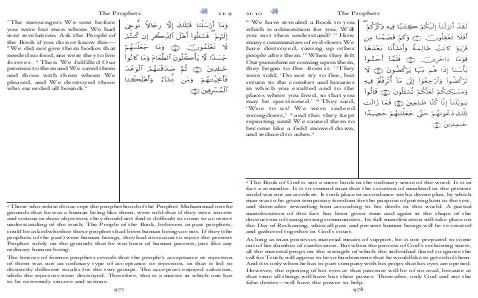 The Prophets
21: 7-9
⁷The messengers We sent before
you were but men whom We had
sent revelations. Ask the People of
the Book if you do not know this—
⁸We did not give them bodies that
needed no food, nor were they to live
forever. ⁹Then We fulfilled Our
promise to them and We saved them
and those with them whom We
pleased, and We destroyed those
who exceeded all bounds.ᵃ
وَمَا أَرْسَلْنَا قَبْلَكَ إِلَّا رِجَالًا نُّوحِي
إِلَيْهِمْ فَسْـَٔلُوٓا۟ أَهْلَ الذِّكْرِ إِن كُنتُمْ
لَا تَعْلَمُونَ ۝ وَمَا جَعَلْنَاهُمْ
جَسَدًا لَّا يَأْكُلُونَ الطَّعَامَ وَمَا كَانُوا
خَالِدِينَ ۝ ثُمَّ صَدَقْنَاهُمُ الْوَعْدَ
فَأَنجَيْنَاهُمْ وَمَن نَّشَاءُ وَأَهْلَكْنَا
الْمُسْرِفِينَ ۝
ᵃ Those who refused to accept the prophethood of the Prophet Muhammad on the
grounds that he was a human being like them, were told that if they were sincere
and serious in their objection, they should not find it difficult to come to a correct
understanding of the truth. The People of the Book, believers in past prophets,
could be asked whether these prophets had been human beings or not. If they (the
prophets of the past) were human beings, they had no reason to reject the present
Prophet solely on the grounds that he was born of human parents, just like any
ordinary human being.
The history of former prophets reveals that the people's acceptance or rejection
of them was not an ordinary type of acceptance or rejection, in that it led to
distinctly different results for the two groups. The acceptors enjoyed salvation,
while the rejectors were destroyed. Therefore, this is a matter in which one has
to be extremely sincere and serious.
977
21: 10-15
The Prophets
¹⁰We have revealed a Book to you
which is admonition for you. Will
you not then understand? ¹¹How
many communities of evildoers We
have destroyed, raising up other
people after them. ¹²When they felt
Our punishment coming upon them,
they began to flee from it: ¹³They
were told, 'Do not try to flee, but
return to the comfort and luxuries
in which you exulted and to the
places where you lived, so that you
may be questioned.' ¹⁴They said,
'Woe to us! We were indeed
wrongdoers,' ¹⁵and this they kept
repeating until We caused them to
become like a field mowed down,
and reduced to ashes.ᵃ
لَقَدْ أَنزَلْنَا إِلَيْكُمْ كِتَابًا فِيهِ ذِكْرُكُمْ
أَفَلَا تَعْقِلُونَ ۝ وَكَمْ قَصَمْنَا مِن
قَرْيَةٍ كَانَتْ ظَالِمَةً وَأَنشَأْنَا بَعْدَهَا
قَوْمًا آخَرِينَ ۝ فَلَمَّا أَحَسُّوا
بَأْسَنَا إِذَا هُم مِّنْهَا يَرْكُضُونَ ۝ لَا
تَرْكُضُوا وَارْجِعُوا إِلَىٰ مَا أُتْرِفْتُمْ فِيهِ
وَمَسَاكِنِكُمْ لَعَلَّكُمْ تُسْأَلُونَ ۝ قَالُوا
يَا وَيْلَنَا إِنَّا كُنَّا ظَالِمِينَ ۝ فَمَا زَالَت
تِّلْكَ دَعْوَاهُمْ حَتَّىٰ جَعَلْنَاهُمْ حَصِيدًا
خَامِدِينَ ۝
ᵃ The Book of God is not a mere book in the ordinary sense of the word. It is in
fact a reminder. It is to remind man that the creation of mankind in the present
world was not an accident. It took place in accordance with a divine plan, by which
man was to be given temporary freedom for the purpose of putting him to the test,
and thereafter rewarding him according to his deeds in this world. A partial
manifestation of this fact has been given time and again in the shape of the
destruction of transgressing communities. Its full manifestation will take place on
the Day of Reckoning, when all past and present human beings will be re-created
and gathered together in God's court.
As long as man possesses material means of support, he is not prepared to come
out of his slumber of carelessness. But when the process of God's reckoning starts,
all the material props on the strength of which the individual dared to ignore the
call for Truth, will appear to be so burdensome that he would like to get rid of them.
And it is only when he has to part company with his props that his eyes are opened.
However, the opening of his eyes at that juncture will be of no avail, because at
that time all things will have lost their power. Thereafter, only God and not the
false deities—will have the power to help.
978